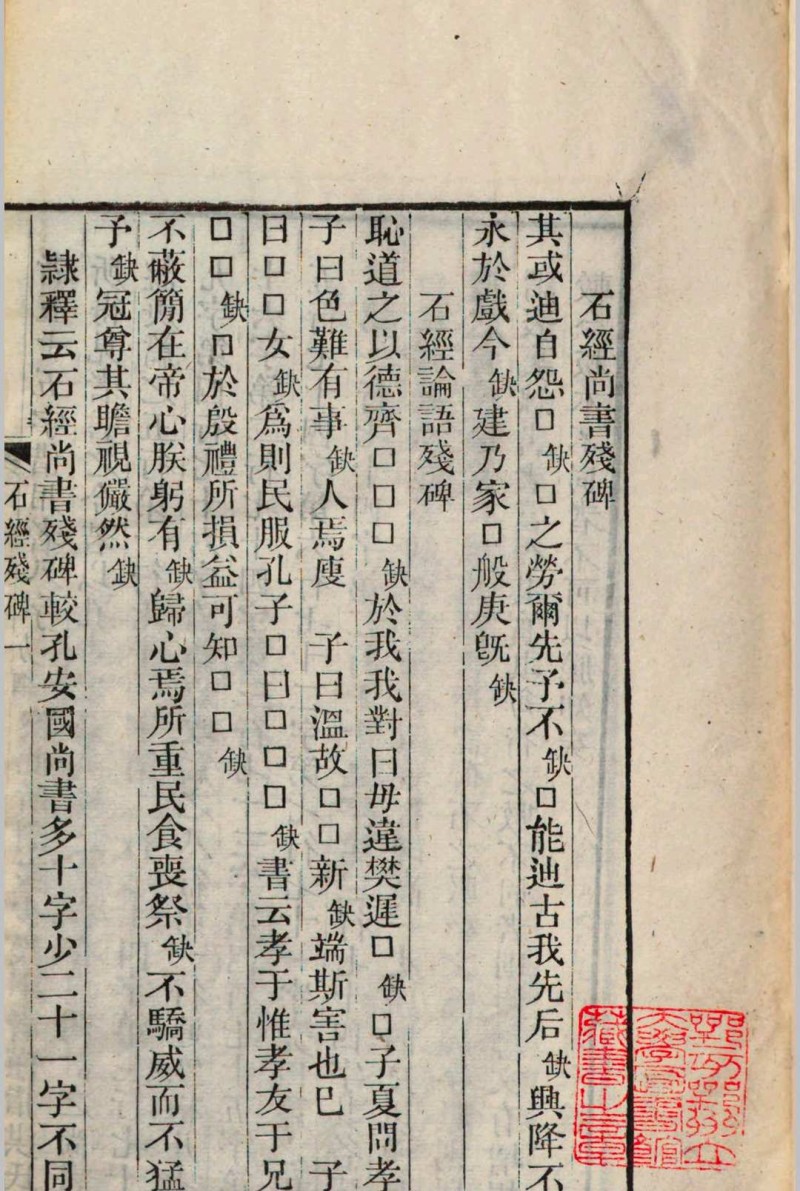 石經尚書殘碑
其或迪自怨□缺□之勞爾先予不缺□能迪古我先后缺興降不
永於戲今缺建乃家□般庚既缺
石經論語殘碑
恥道之以德齊□□□缺於我我對曰毋違樊遲□缺□子夏問孝
子曰色難有事缺人焉廋 子曰溫故□□新缺端斯害也已 子
曰□□女缺爲則民服孔子□曰□□□缺書云孝于惟孝友于兄
□□缺□於殷禮所損益可知□□缺
不蔽簡在帝心朕躬有缺歸心焉所重民食喪祭缺不驕威而不猛
予缺冠尊其瞻視儼然缺
隸釋云石經尚書殘碑較孔安國尚書多十字少二十一字不同
石經殘碑 一